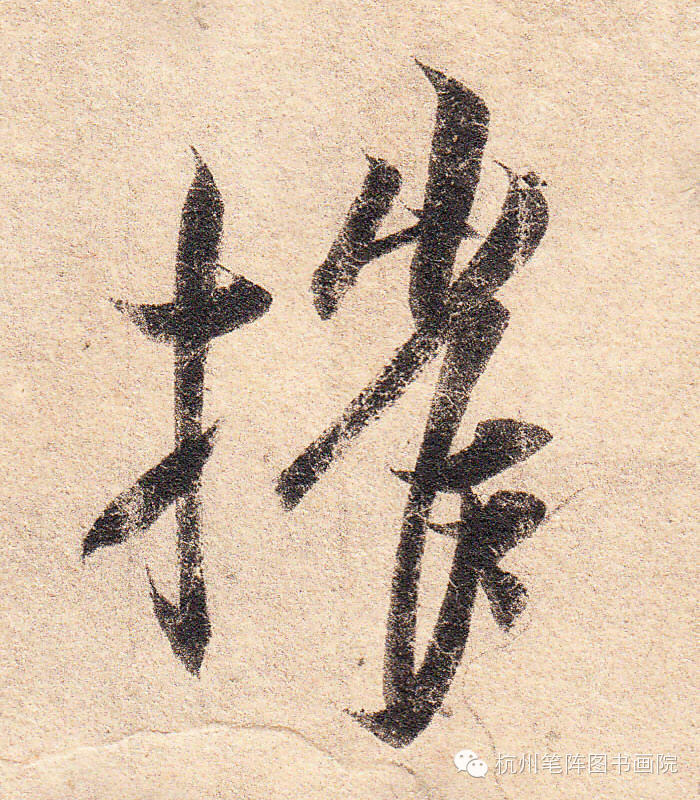 摧
杭州笔阵图书画院